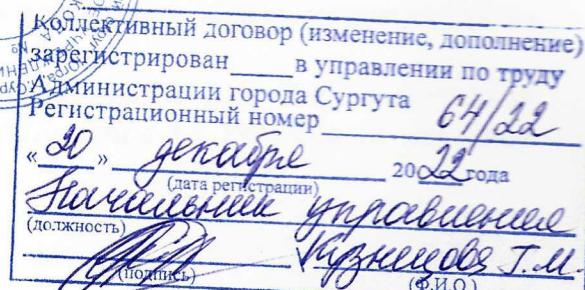 Коллективный договор (изменение, дополнение)
зарегистрирован_____в управлении по труду
Администрации города Сургута
Регистрационный номер 64/22
«20» декабря 2022года
(дата регистрации)
Начальник управления
(должность)
Кузнецова Т.М.
(подпись) (Ф.И.О.)